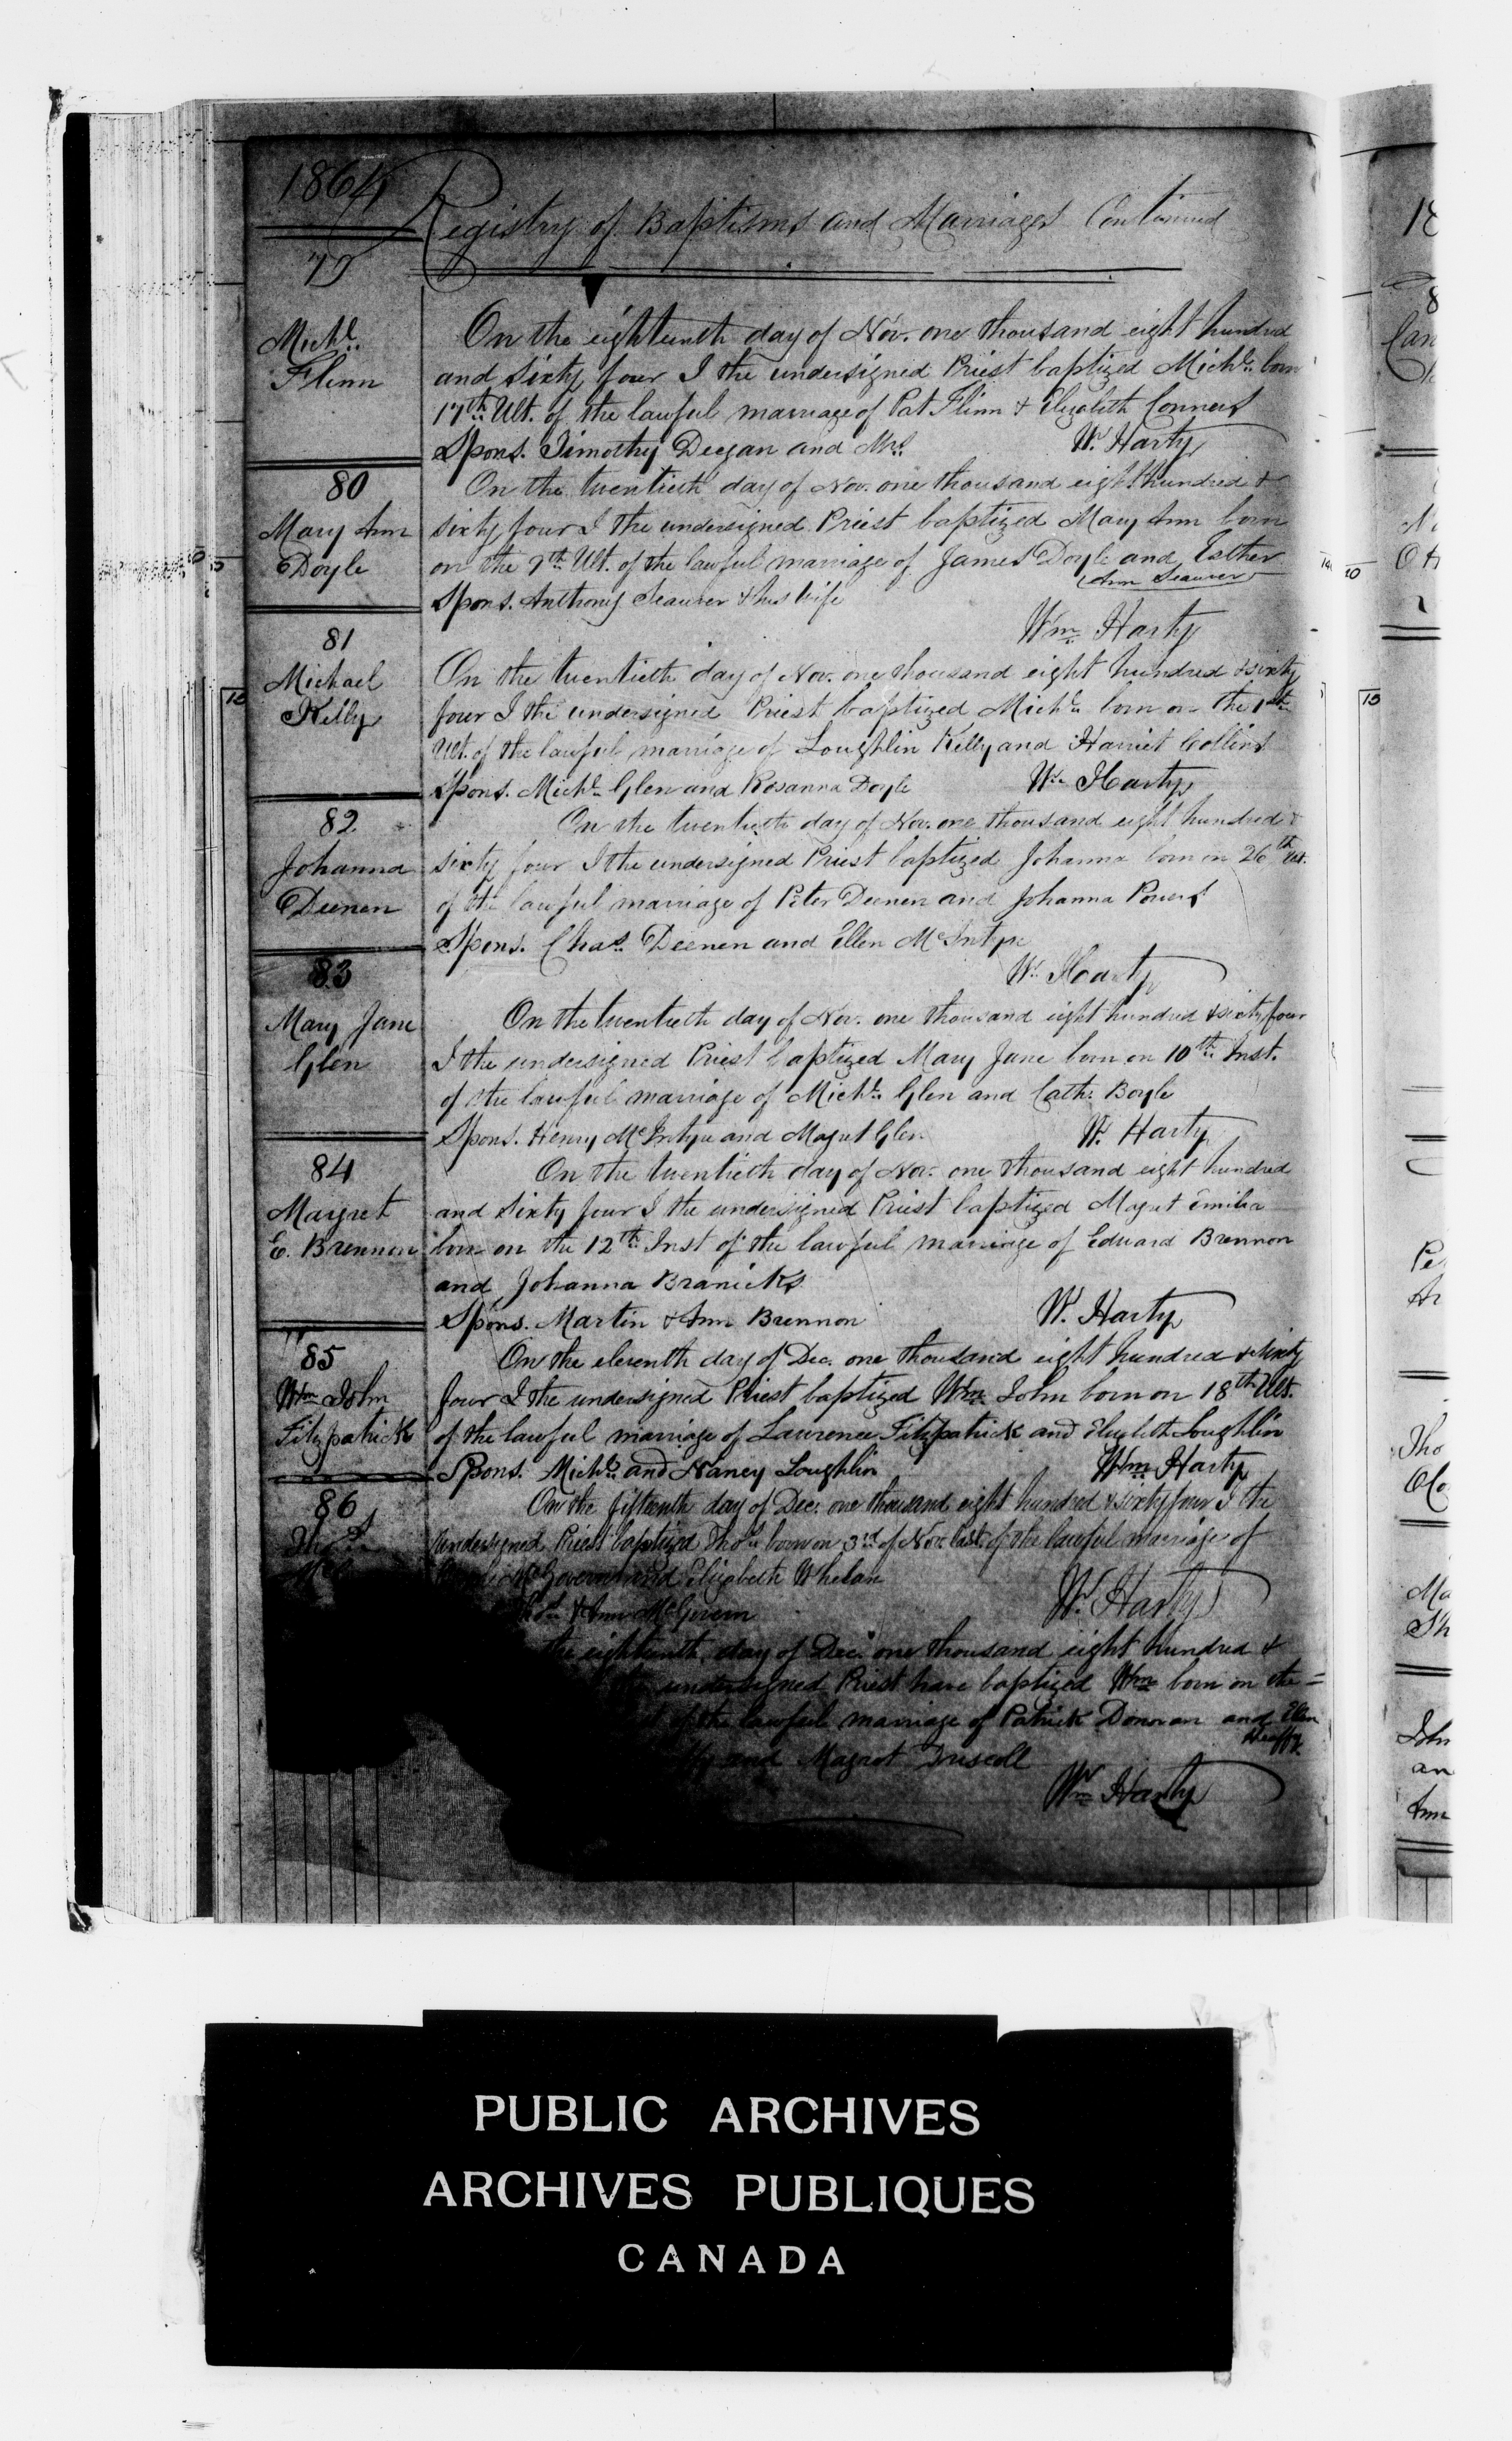 1864
Registry of Baptisms and Marriages Continued
79
Michl. Flinn
On the eighteenth day of Nov. one thousand eight hundred
and sixty four I the undersigned Priest baptized Michl. born
17th Ult. of the lawful marriage of Pat Flinn & Elizabeth Conners
Spons. Timothy Deegan and Mrs.
W. Harty
80
Mary Ann Doyle
On the twentieth day of Nov. one thousand eight hundred &
sixty four I the undersigned Priest baptized Mary Ann born
on the 9th Ult. of the lawful marriage of James Doyle and Esther
Ann Seaurer
Spons. Anthony Seaurer & his wife
Wm. Harty
81
Michael Kelly
On the twentieth day of Nov. one thousand eight hundred & sixty
four I the undersigned Priest baptized Michl. born on the 1st
Ult. of the lawful marriage of Loughlin Kelly and Harriet Collins
Spons. Michl. Glen and Rosanna Doyle
Wm. Harty
82
Johanna Deenen
On the twentieth day of Nov. one thousand eight hundred &
sixty four I the undersigned Priest baptized Johanna born on 26th Ult.
of the lawful marriage of Peter Deenen and Johanna Powers
Spons. Chas. Deenen and Ellen McIntyre
W. Harty
83
Mary Jane Glen
On the twentieth day of Nov. one thousand eight hundred & sixty four
I the undersigned Priest baptized Mary Jane born on 10th Inst.
of the lawful marriage of Michl. Glen and Cath. Boyle
Spons. Henry McIntyre and Magret Glen
W. Harty
84
Magret E. Brennon
On the twentieth day of Nov. one thousand eight hundred
and sixty four I the undersigned Priest baptized Magret Emilia
born on the 12th Inst of the lawful marriage of Edward Brennon
and Johanna Branicks
Spons. Martin & Ann Brennon
W. Harty
85
Wm John Fitzpatrick
On the eleventh day of Dec. one thousand eight hundred & sixty
four I the undersigned Priest baptized Wm. John born on 18th Ult.
of the lawful marriage of Lawrence Fitzpatrick and Elizabeth Loughlin
Spons. Michl. and Nancy Loughlin
Wm. Harty
86
Thos.
On the fifteenth day of Dec. one thousand eight hundred & sixty four I the
undersigned Priest baptized Thos. born on 3rd of Nov. last of the lawful marriage of
McGovern and Elizabeth Whelan
Thos. & Ann McGovern
W. Harty
the eighteenth day of Dec. one thousand eight hundred &
undersigned Priest have baptized Wm. born on the
of the lawful marriage of Patrick Donovan and Ellen
Heaffy
and Magret Driscoll
Wm Harty
PUBLIC ARCHIVES
ARCHIVES PUBLIQUES
CANADA